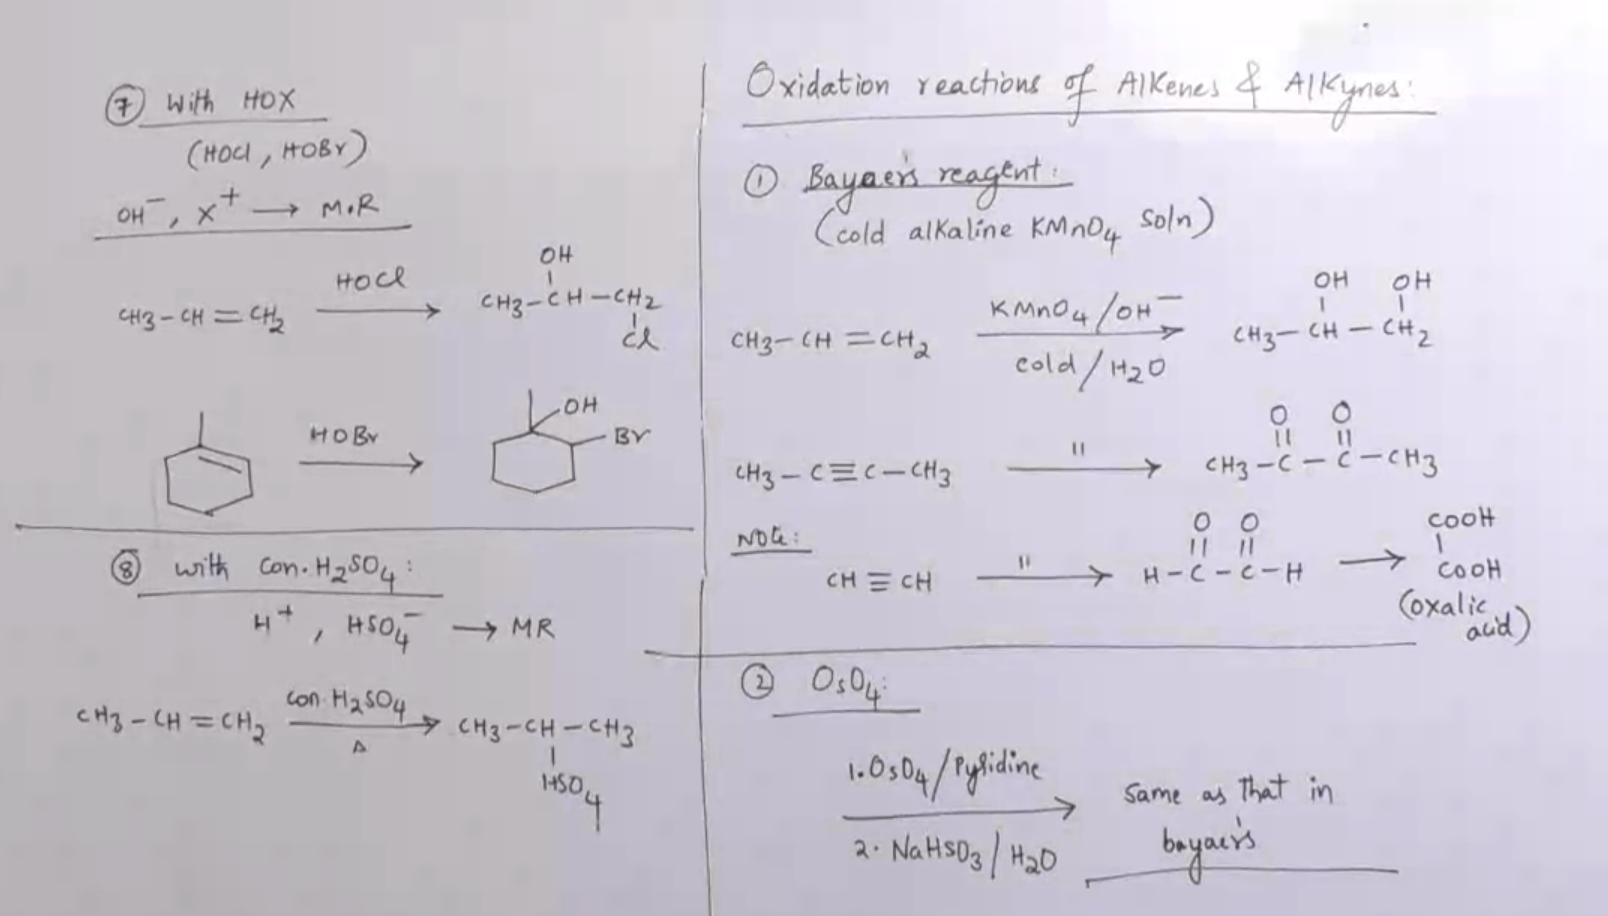 ⑦ With HOX
(HOCl, HOBr)
OH⁻, X⁺ → M.R
CH3-CH=CH2 HOCl → CH3-CH-CH2
OH
Cl
HOBr →
OH
Br
⑧ with Con.H2SO4:
H⁺, HSO4⁻ → MR
CH3-CH=CH2 con.H2SO4 → CH3-CH-CH3
Δ
HSO4
Oxidation reactions of Alkenes & Alkynes:
① Bayaer's reagent:
(cold alkaline KMnO4 soln)
CH3-CH=CH2 KMnO4/OH⁻ → CH3-CH-CH2
cold/H2O
OH OH
CH3-C≡C-CH3 " → CH3-C-C-CH3
O O
Note:
CH≡CH " → H-C-C-H → COOH
O O
COOH
(oxalic
acid)
② OsO4:
1. OsO4/Pyridine
→ Same as that in
2. NaHSO3/H2O bayaer's